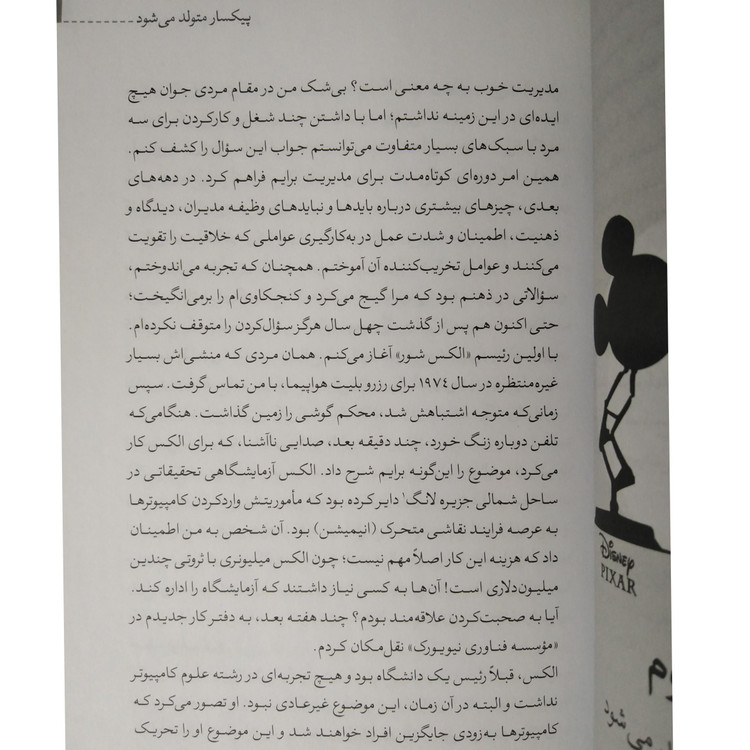 پیکسار متولد می‌شود
مدیریت خوب به چه معنی است؟ بی‌شک من در مقام مردی جوان هیچ
ایده‌ای در این زمینه نداشتم؛ اما با داشتن چند شغل و کارکردن برای سه
مرد با سبک‌های بسیار متفاوت می‌توانستم جواب این سؤال را کشف کنم.
همین امر دوره‌ای کوتاه‌مدت برای مدیریت برایم فراهم کرد. در دهه‌های
بعدی، چیزهای بیشتری درباره بایدها و نبایدهای وظیفه مدیران، دیدگاه و
ذهنیت، اطمینان و شدت عمل در به‌کارگیری عواملی که خلاقیت را تقویت
می‌کنند و عوامل تخریب‌کننده آن آموختم. همچنان که تجربه می‌اندوختم،
سؤالاتی در ذهنم بود که مرا گیج می‌کرد و کنجکاوی‌ام را برمی‌انگیخت؛
حتی اکنون هم پس از گذشت چهل سال هرگز سؤال‌کردن را متوقف نکرده‌ام.
با اولین رئیسم «الکس شور» آغاز می‌کنم. همان مردی که منشی‌اش بسیار
غیره‌منتظره در سال ١٩٧٤ برای رزرو بلیت هواپیما، با من تماس گرفت. سپس
زمانی‌که متوجه اشتباهش شد، محکم گوشی را زمین گذاشت. هنگامی‌که
تلفن دوباره زنگ خورد، چند دقیقه بعد، صدایی ناآشنا، که برای الکس کار
می‌کرد، موضوع را این‌گونه برایم شرح داد. الکس آزمایشگاهی تحقیقاتی در
ساحل شمالی جزیره لانگ¹ دایر کرده بود که مأموریتش واردکردن کامپیوترها
به عرصه فرایند نقاشی متحرک (انیمیشن) بود. آن شخص به من اطمینان
داد که هزینه این کار اصلاً مهم نیست؛ چون الکس میلیونری با ثروتی چندین
میلیون‌دلاری است! آن‌ها به کسی نیاز داشتند که آزمایشگاه را اداره کند.
آیا به صحبت‌کردن علاقه‌مند بودم؟ چند هفته بعد، به دفتر کار جدیدم در
«مؤسسه فناوری نیویورک» نقل‌مکان کردم.
الکس، قبلاً رئیس یک دانشگاه بود و هیچ تجربه‌ای در رشته علوم کامپیوتر
نداشت و البته در آن زمان، این موضوع غیرعادی نبود. او تصور می‌کرد که
کامپیوترها به‌زودی جایگزین افراد خواهند شد و این موضوع او را تحریک
DISNEY
PIXAR
می شود